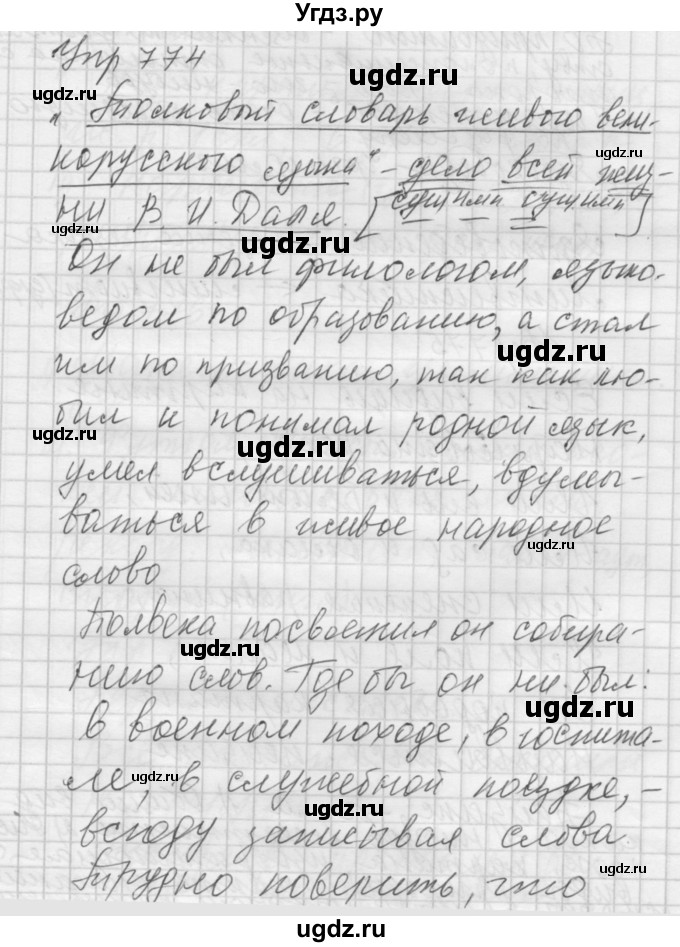 Угдз.ру
Упр 774
ugdz.ru
„Толковый словарь живого вели-
ugdz.ru
корусского языка" – дело всей жиз-
ни В. И. Даля. [сущ.им.п сущ.им.п].
ugdz.ru
Он не был филологом, языко-
ведом по образованию, а стал
ugdz.ru
им по призванию, так как лю-
бил и понимал родной язык,
ugdz.ru ugdz.ru
умел вслушиваться, вдумы-
ваться в живое народное
ugdz.ru
слово
Полвека посвоетил он собира-
ugdz.ru
нию слов. Где бы он ни был:
ugdz.ru
в военном походе, в госпита-
ле, в служебной поездке, –
ugdz.ru ugdz.ru
всюду записывал слова.
Трудно поверить, что
ugdz.ru
ugdz.ru